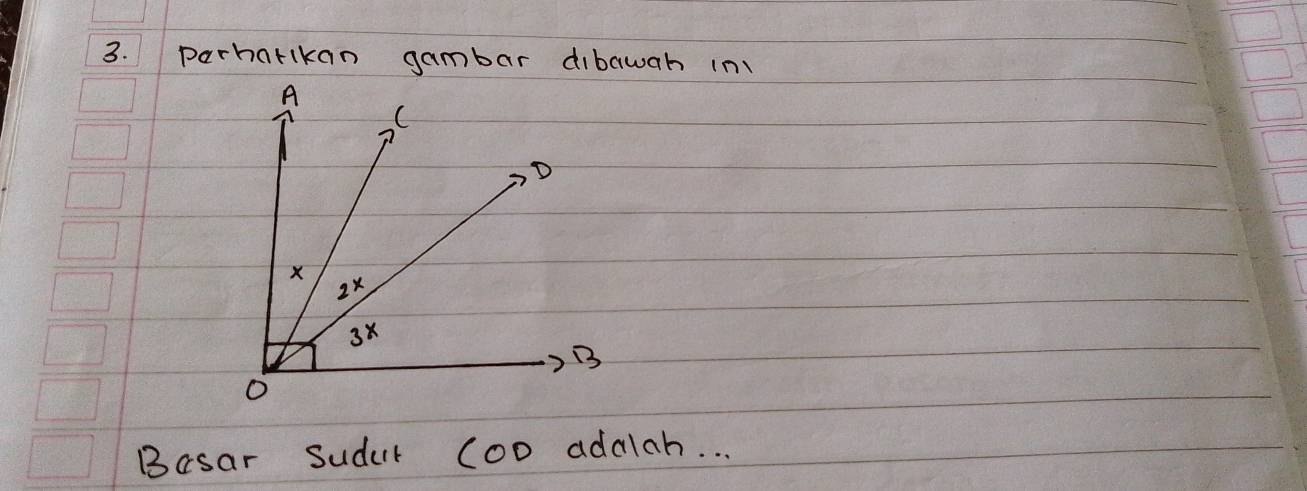 3. Perhatikan gambar dibawah ini
A
C
D
x
2x
3x
B
O
Besar Sudut COD adalah...